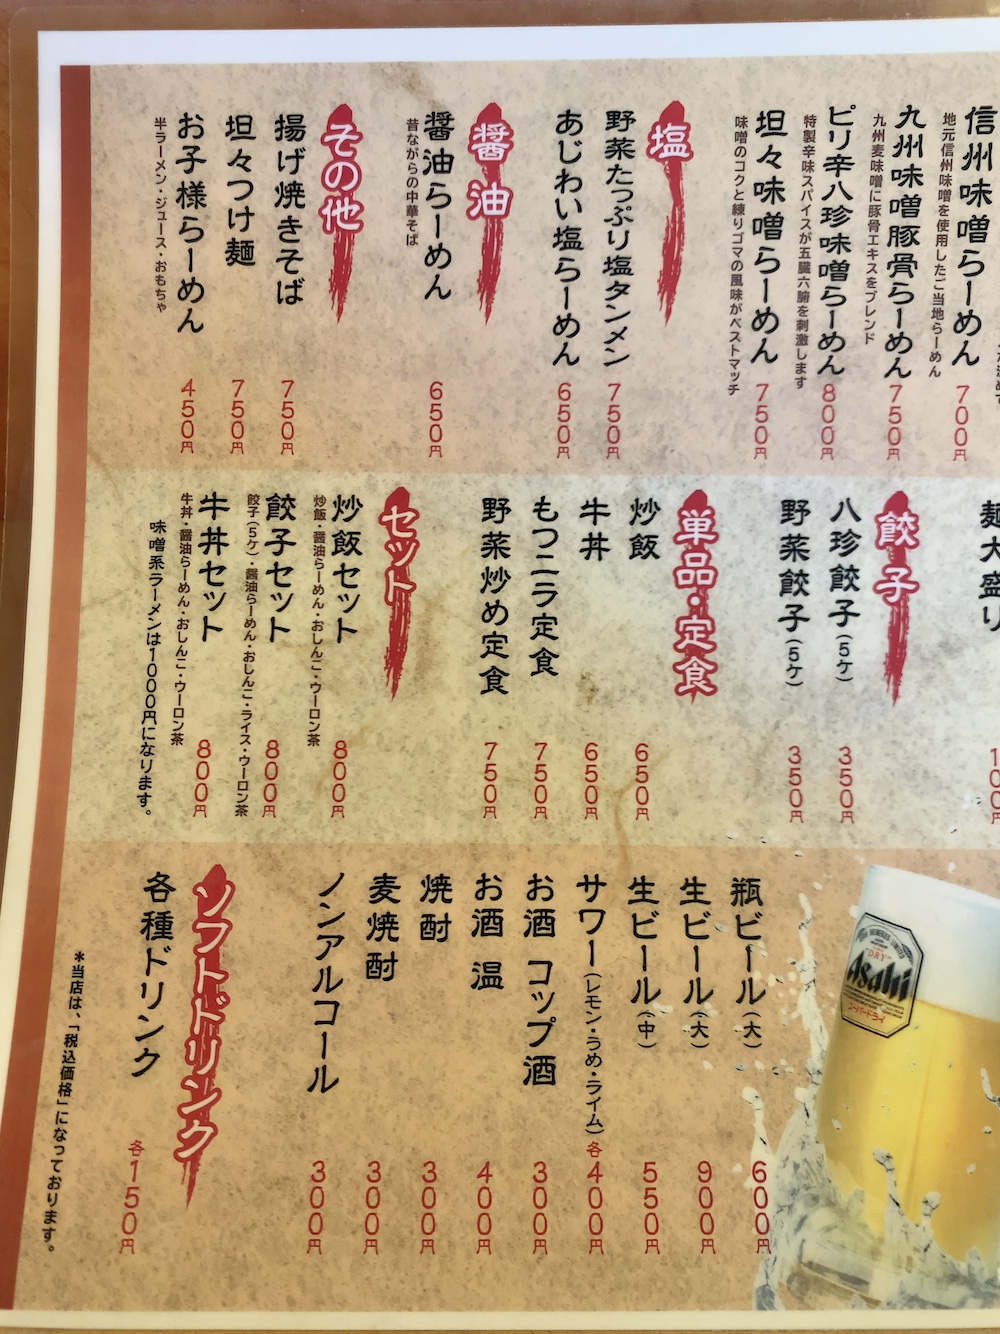 信州味噌らーめん
地元信州味噌を使用したご当地らーめん
700円
九州味噌豚骨らーめん
九州麦味噌に豚骨エキスをブレンド
750円
ピリ辛八珍味噌らーめん
特製辛味スパイスが五臓六腑を刺激します
800円
坦々味噌らーめん
味噌のコクと練りゴマの風味がベストマッチ
750円
塩
野菜たっぷり塩タンメン
750円
あじわい塩らーめん
650円
醤油
醤油らーめん
昔ながらの中華そば
650円
その他
揚げ焼きそば
750円
坦々つけ麺
750円
お子様らーめん
半ラーメン・ジュース・おもちゃ
450円
麺大盛り
100円
餃子
八珍餃子(5ケ)
350円
野菜餃子(5ケ)
350円
単品・定食
炒飯
650円
牛丼
650円
もつニラ定食
750円
野菜炒め定食
750円
セット
炒飯セット
炒飯・醤油らーめん・おしんこ・ウーロン茶
800円
餃子セット
餃子(5ケ)・醤油らーめん・おしんこ・ライス・ウーロン茶
800円
牛丼セット
牛丼・醤油らーめん・おしんこ・ウーロン茶
800円
味噌系ラーメンは1000円になります。
Asahi
DRY
スーパードライ
瓶ビール(大)
600円
生ビール(大)
900円
生ビール(中)
550円
サワー(レモン・うめ・ライム)
各400円
お酒 コップ酒
300円
お酒 温
400円
焼酎
300円
麦焼酎
300円
ノンアルコール
300円
ソフトドリンク
各種ドリンク
各150円
*当店は、「税込価格」になっております。